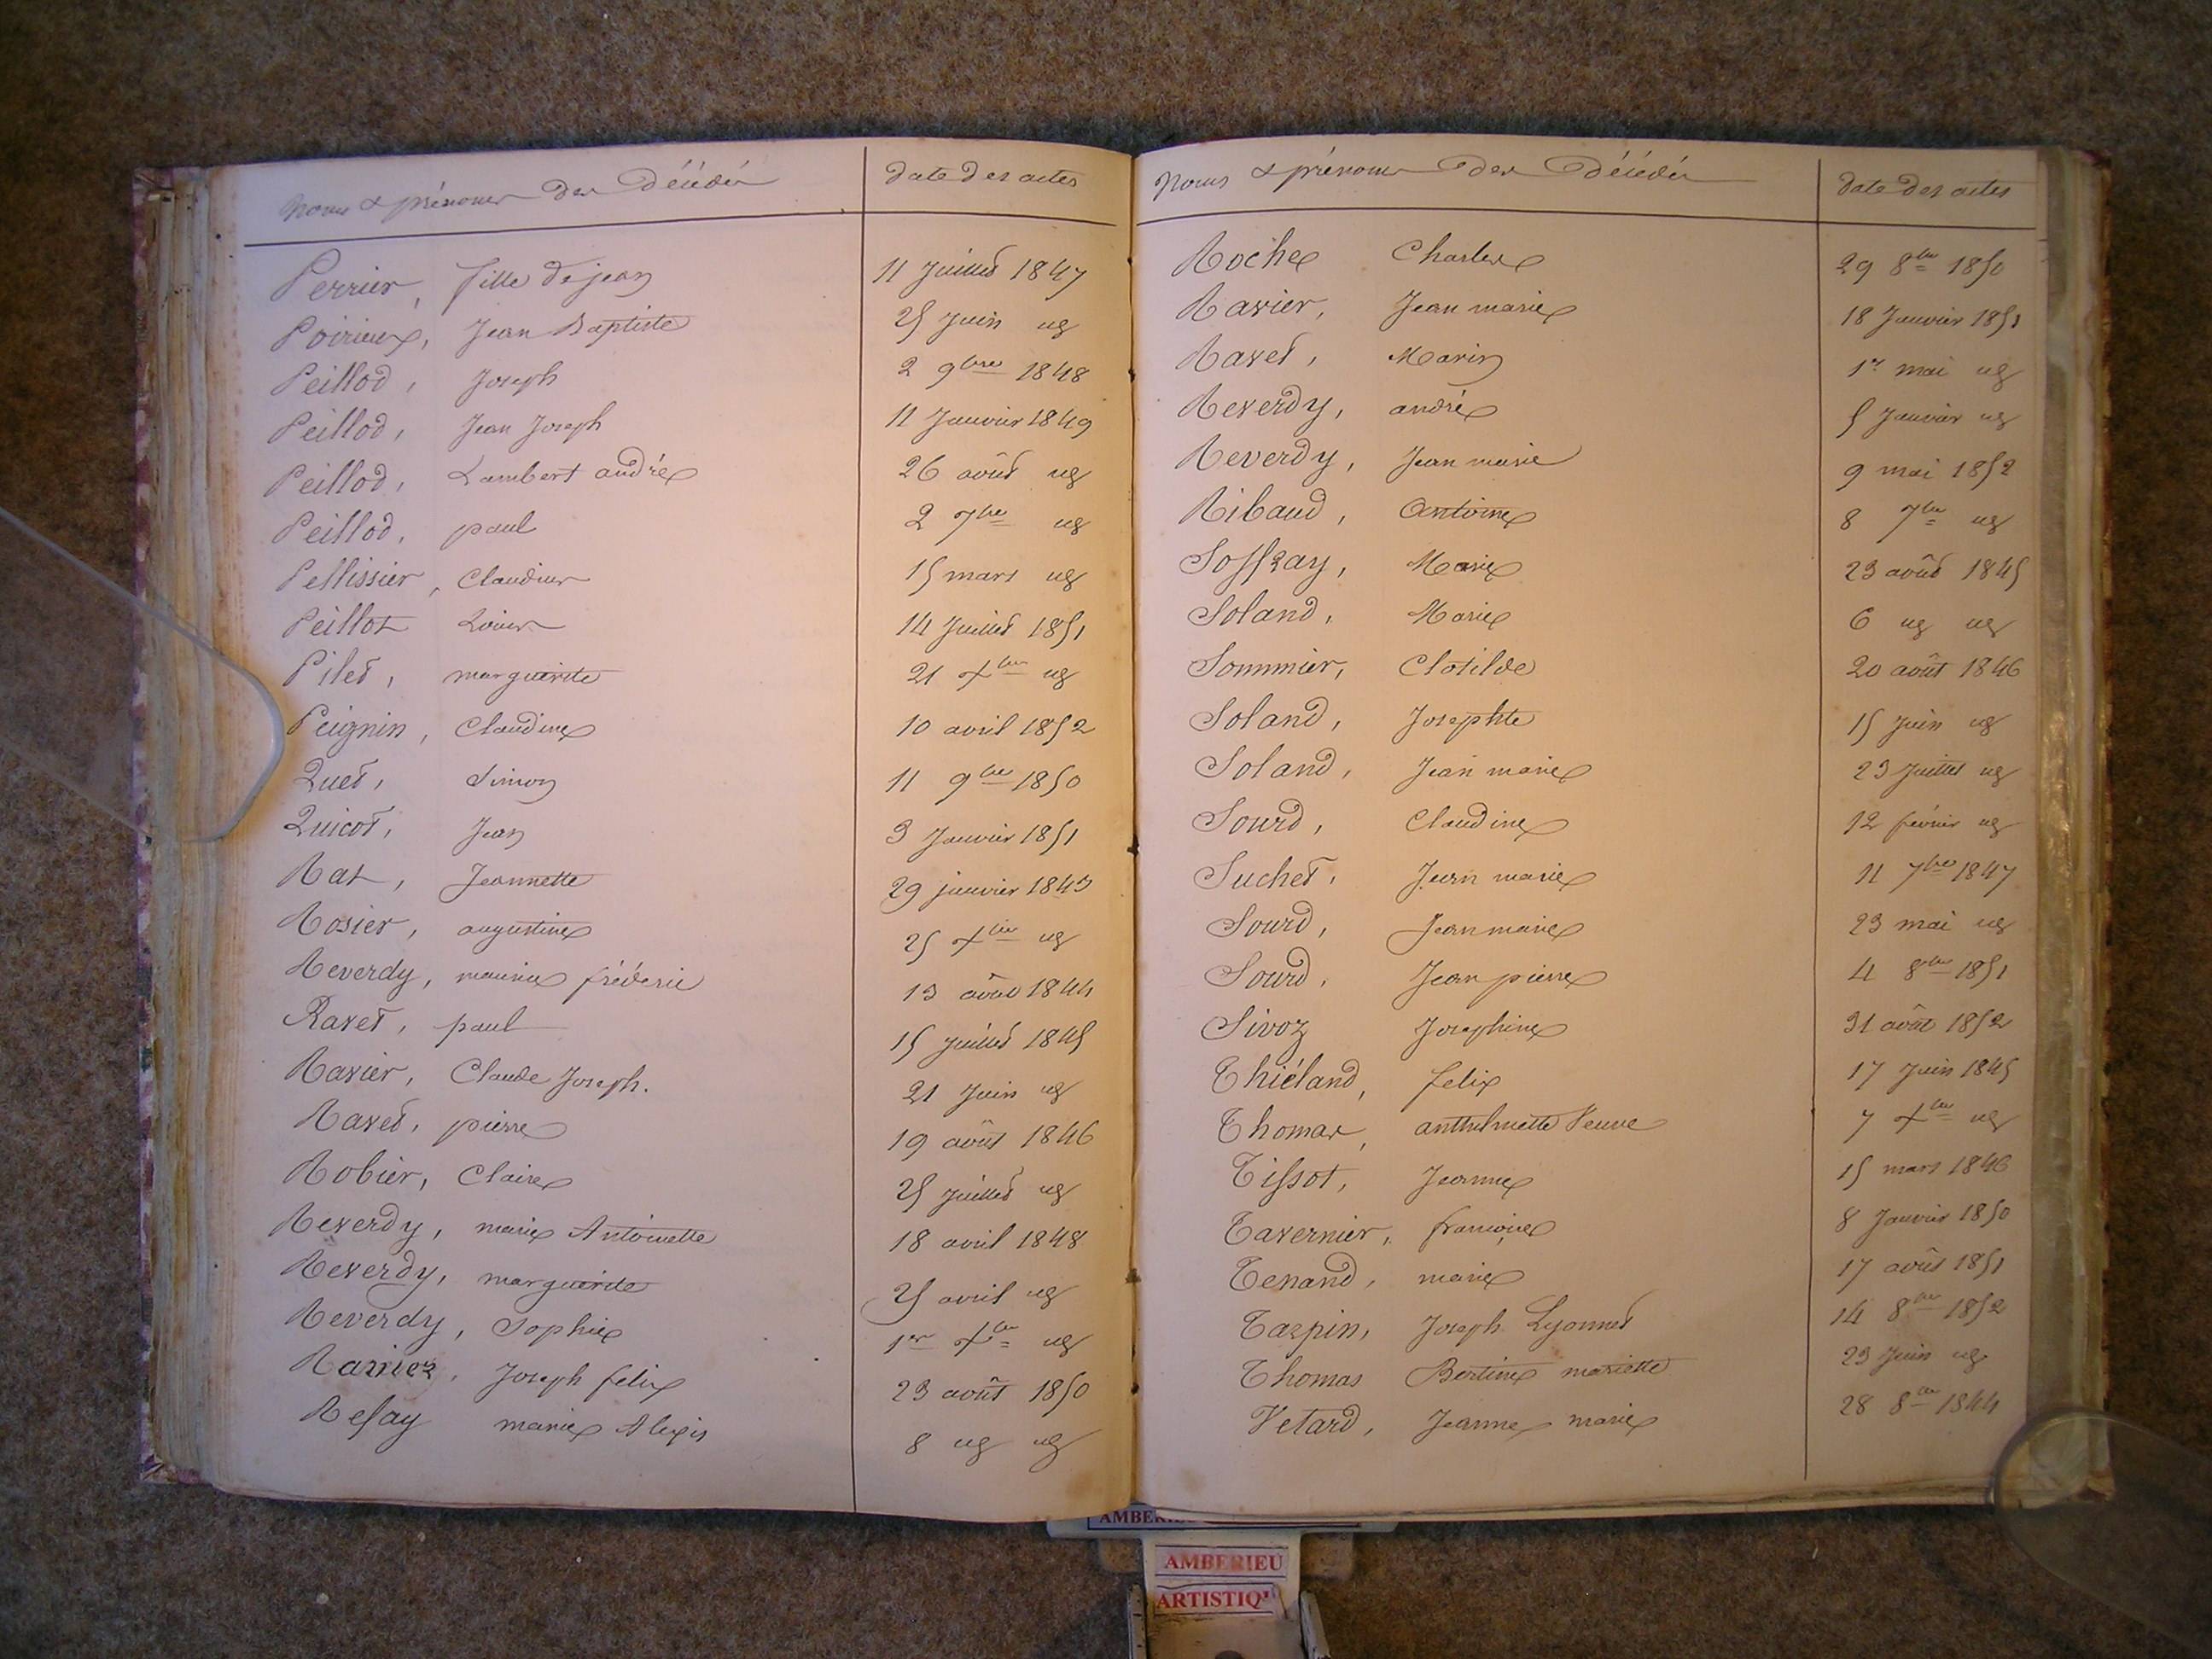 Noms & prénoms des Décédés
date des actes
Perrier, fille de jean 11 Juillet 1847
Poirieux, Jean Baptiste 25 Juin id
Peillod, Joseph 2 9bre 1848
Peillod, Jean Joseph 11 Janvier 1849
Peillod, Lambert andré 26 août id
Peillod, paul 2 7bre id
Pellissier, Claudius 15 mars id
Peillot Louis 14 Juillet 1851
Pilet, marguerite 21 xbre id
Peignin, Claudine 10 avril 1852
Quet, Simon 11 9bre 1850
Quicot, Jean 3 Janvier 1851
Rat, Jeannette 29 janvier 1843
Rosier, augustine 25 xbre id
Reverdy, maurice fréderic 13 août 1844
Ravet, paul 15 Juillet 1845
Ravier, Claude Joseph. 21 Juin id
Ravet, pierre 19 août 1846
Robier, Claire 25 Juillet id
Reverdy, marie Antoinette 18 avril 1848
Reverdy, marguerite 25 avril id
Reverdy, Sophie 1er xbre id
Joseph felix 23 août 1850
Resay marie Alexis 8 id id
Noms & prénoms des Décédés
date des actes
Roche Charles 29 8bre 1850
Ravier, Jean marie 18 Janvier 1851
Ravet, Marin 1er mai id
Reverdy, andré 5 Janvier id
Reverdy, Jean marie 9 mai 1852
Ribaud, Antoine 8 7bre id
Soffray, Marie 23 août 1845
Soland, Marie 6 id id
Sommier, Clotilde 20 août 1846
Soland, Josephte 15 Juin id
Soland, Jean marie 23 Juillet id
Sourd, Claudine 12 février id
Suchet, Jean marie 11 7bre 1847
Sourd, Jean marie 23 mai id
Sourd, Jean pierre 4 8bre 1851
Sivoz Josephine 31 août 1852
Thiéland, felix 17 Juin 1845
Thomas, anthelmette Veuve 7 xbre id
Tissot, Jeanne 15 mars 1846
Tavernier, françoise 8 Janvier 1850
Tenand, marie 17 août 1851
Tarpin, Joseph Lyonnet 14 8bre 1852
Thomas Bertine mariette 23 Juin id
Vetard, Jeanne marie 28 8bre 1844
AMBERIEU
ARTISTIQ